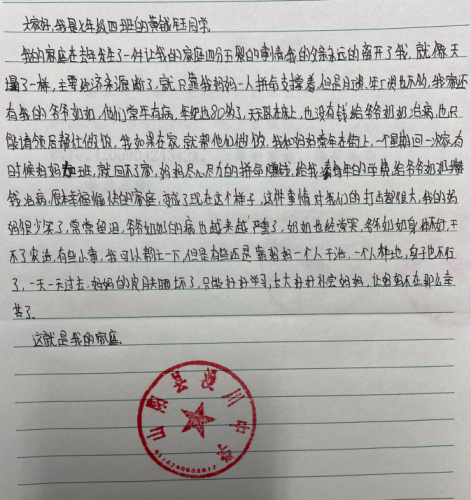 大家好,我是七年级四班的黄钰玉同学.
我的家庭在去年发生了一件让我的家庭四分五裂的事情,我的父亲永远的离开了我,就像天
塌了一样,主要经济来源断了,就只靠我妈妈一人拼命支撑着,但是月浪,年丁浪也不的,我家还
有我的爷爷奶奶,他们常年有病,年纪也80多了,天天卧在床上,也没有钱给爷爷奶奶治病,也只
能请领居帮忙做饭,我如果在家,就帮他们做饭,我和妈妈常年在街上,一个星期回一次家,有
时候妈妈加班,就回不了家,妈妈尽心尽力的拼命赚钱,给我每年的学费,给爷爷奶奶
钱治病,原本幸福愉快的家庭,变成了现在这个样子,这件事情对我们的打击都很大,我的妈
妈很少笑了,常常留泪,爷爷奶奶的病也越来越严重了,奶奶也经常哭,爷爷奶奶身体不好,干
不了农活,有些小事,我可以帮忙一下,但是有些还是靠妈妈一个人干活,一个人种地,身子也不行
了,一天一天过去,妈妈的皮肤晒坏了,只能好好学习,长大好好补尝妈妈,让妈妈不在那么辛
苦了.
这就是我的家庭.
山阳县漫川中学